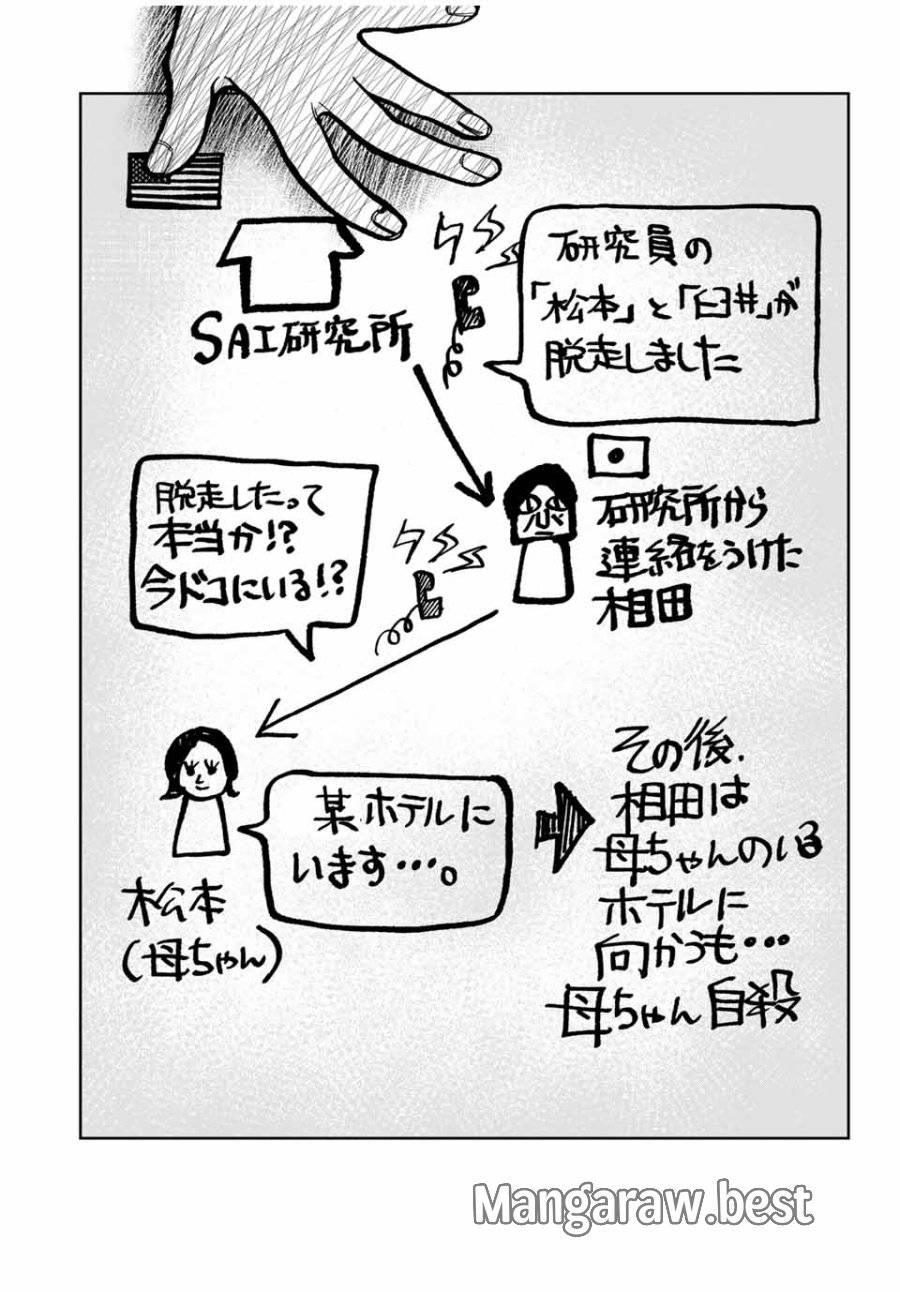 SAI研究所
研究員の
「松本」と「臼井」が
脱走しました
研究所から
連絡をうけた
相田
脱走したって
本当か!?
今ドコにいる!?
松本
(母ちゃん)
某ホテルに
います・・・。
その後、
相田は
母ちゃんのいる
ホテルに
向かうも・・・
母ちゃん自殺
Mangaraw.best